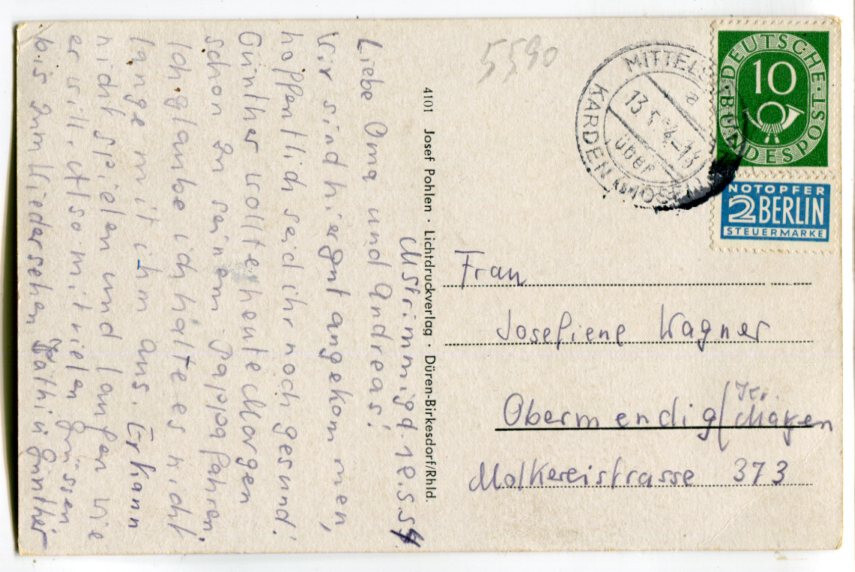 M'Strimmig d. 12.5.54.
Liebe Oma und Andreas!
Wir sind hier gut angekommen,
hoffentlich seid ihr noch gesund.
Günther wollte heute Morgen
schon zu seinem Pappa fahren.
Ich glaube ich halte es nicht
lange mit ihm aus. Er kann
nicht spielen und laufen wie
er will. Also mit vielen Grüssen
bis zum Wiedersehen Käthi u Günther
4101 Josef Pohlen · Lichtdruckverlag · Düren-Birkesdorf/Rhld.
5590
MITTELS
a
13.5.54-13
über
KARDEN (MOSEL)
DEUTSCHE BUNDESPOST
10
NOTOPFER
2 BERLIN
STEUERMARKE
Frau
Josefiene Wagner
Obermendig/Kr. Mayen
Molkereistrasse 373